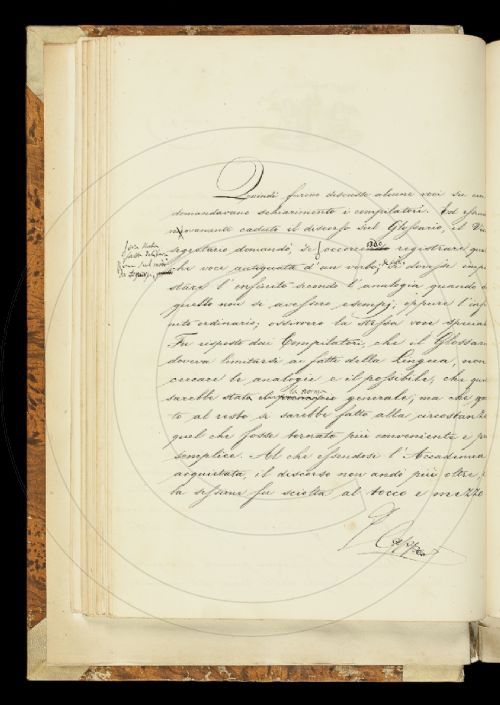 Quindi furono discusse alcune voci su cui
domandavano schiarimento i compilatori. Ed essendo
nuovamente caduto il discorso sul Glossario, il Vice
segretario domandò, se occorrendo registrare qual
che voce antiquata d'un verbo, si dovesse impo
stare l'infinito secondo l'analogia quando di
questo non si avessero esempj; oppure l'infi
nito ordinario; ovvero la stessa voce
Fu risposto dai Compilatori, che il Glossario
doveva limitarsi ai fatti della lingua, non
cercare le analogie e il possibile, che questa
sarebbe stata la norma generale, ma che quan
to al resto si sarebbe fatto alla circostanza
quel che fosse tornato più conveniente e più
semplice. Al che essendosi l'Accademia
acquietata, il discorso non andò più oltre, e
la sessione fu sciolta al tocco e mezzo